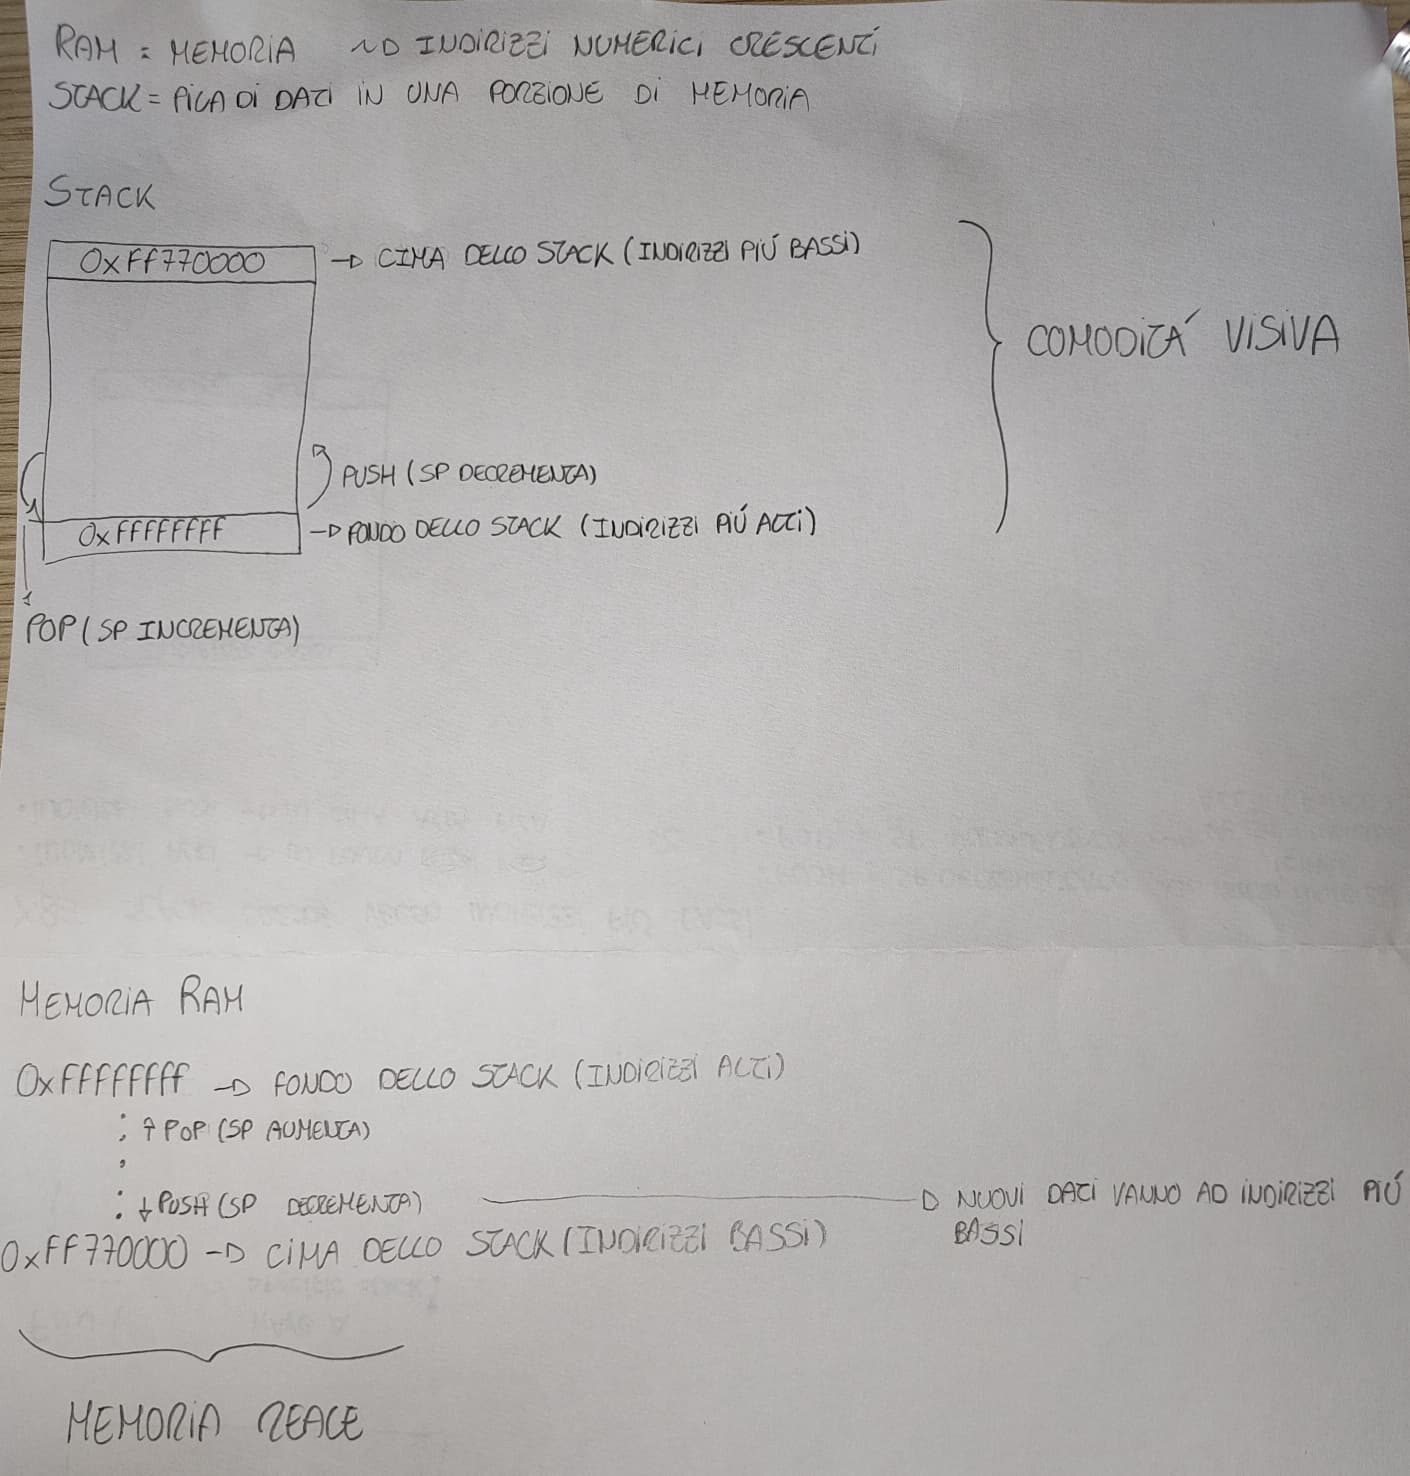 RAM = MEMORIA → INDIRIZZI NUMERICI CRESCENTI
STACK = PILA DI DATI IN UNA PORZIONE DI MEMORIA
STACK
0xFF770000 → CIMA DELLO STACK (INDIRIZZI PIÚ BASSI)
COMODITÁ VISIVA
PUSH (SP DECREMENTA)
0xFFFFFFFF → FONDO DELLO STACK (INDIRIZZI PIÚ ALTI)
POP (SP INCREMENTA)
MEMORIA RAM
0xFFFFFFFF → FONDO DELLO STACK (INDIRIZZI ALTI)
↑ POP (SP AUMENTA)
↓ PUSH (SP DECREMENTA) → NUOVI DATI VANNO AD INDIRIZZI PIÚ
BASSI
0xFF770000 → CIMA DELLO STACK (INDIRIZZI BASSI)
MEMORIA REALE